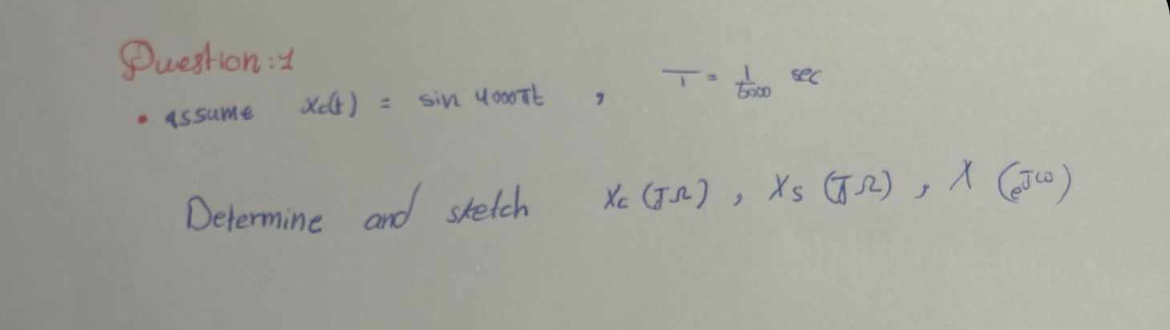 Question:1
• assume xc(t) = sin 4000πt , T = 1/6000 sec
Determine and sketch Xc (JΩ) , Xs (JΩ) , X (e^Jω)